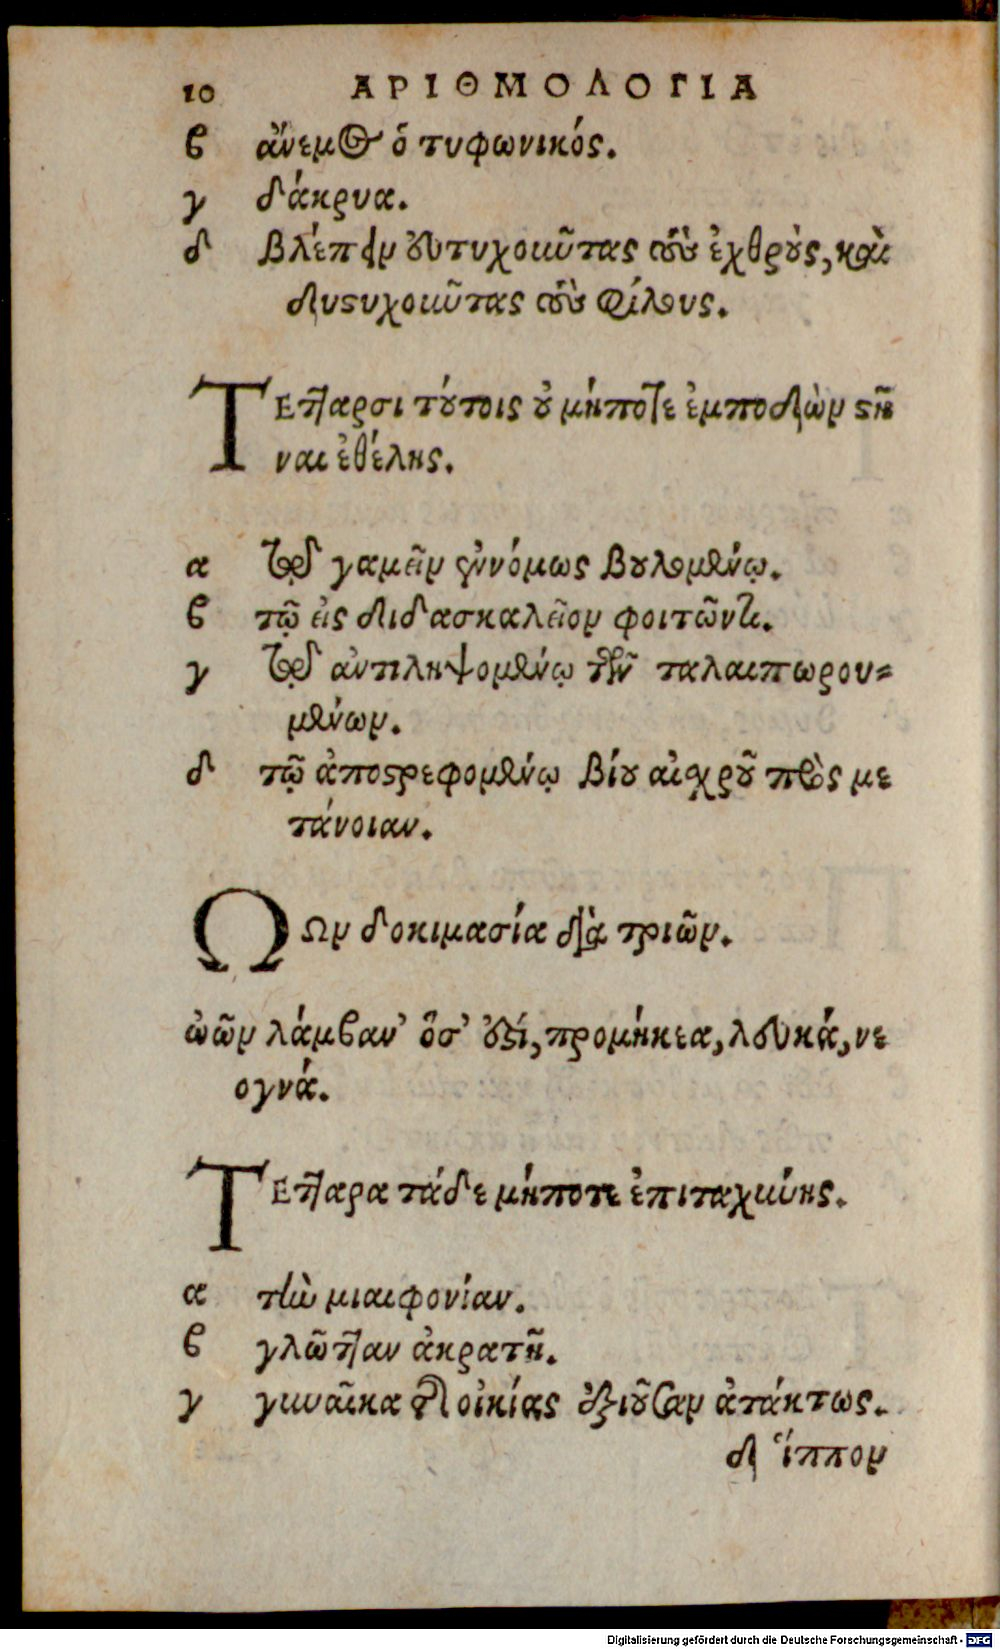 10 ΑΡΙΘΜΟΛΟΓΙΑ
β ἄνεμος ὁ τυφωνικός.
γ δάκρυα.
δ βλέπειν εὐτυχοῦντας τοὺς ἐχθρούς, καὶ
δυστυχοῦντας τοὺς φίλους.
ΤΕτταρσι τούτοις οὐ μήποτε ἐμποδὼν στῆ
ναι ἐθέλῃς.
α τῷ γαμεῖν ἐννόμως βουλομένῳ.
β τῷ εἰς διδασκαλεῖον φοιτῶντι.
γ τῷ ἀντιληψομένῳ τῶν ταλαιπωρου=
μένων.
δ τῷ ἀποστρεφομένῳ βίου αἰσχροῦ πρὸς με
τάνοιαν.
ΩΩν δοκιμασία διὰ τριῶν.
ὠῶν λάμβαν' ὅσ' ἐστί, προμήκεα, λευκά, νε
ογνά.
ΤΕτταρα τάδε μήποτε ἐπιταχύνῃς.
α τὴν μιαιφονίαν.
β γλῶτταν ἀκρατῆ.
γ γυναῖκα τῆς οἰκίας ἐξιοῦσαν ἀτάκτως.
δ ἵππον
Digitalisierung gefördert durch die Deutsche Forschungsgemeinschaft - DFG